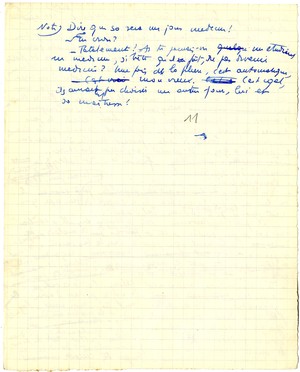 Note) Dire que ça sera un jour médecin!
– Tu crois?
– Parfaitement! As tu jamais vu quelque un étudiant
en médecin, si bête qu'il soit, ne pas devenir
médecin? Une fois de la place, c'est automatique,
mon vieux. C'est égal,
ils auraient pu choisir un autre jour, lui et
sa maîtresse!
11